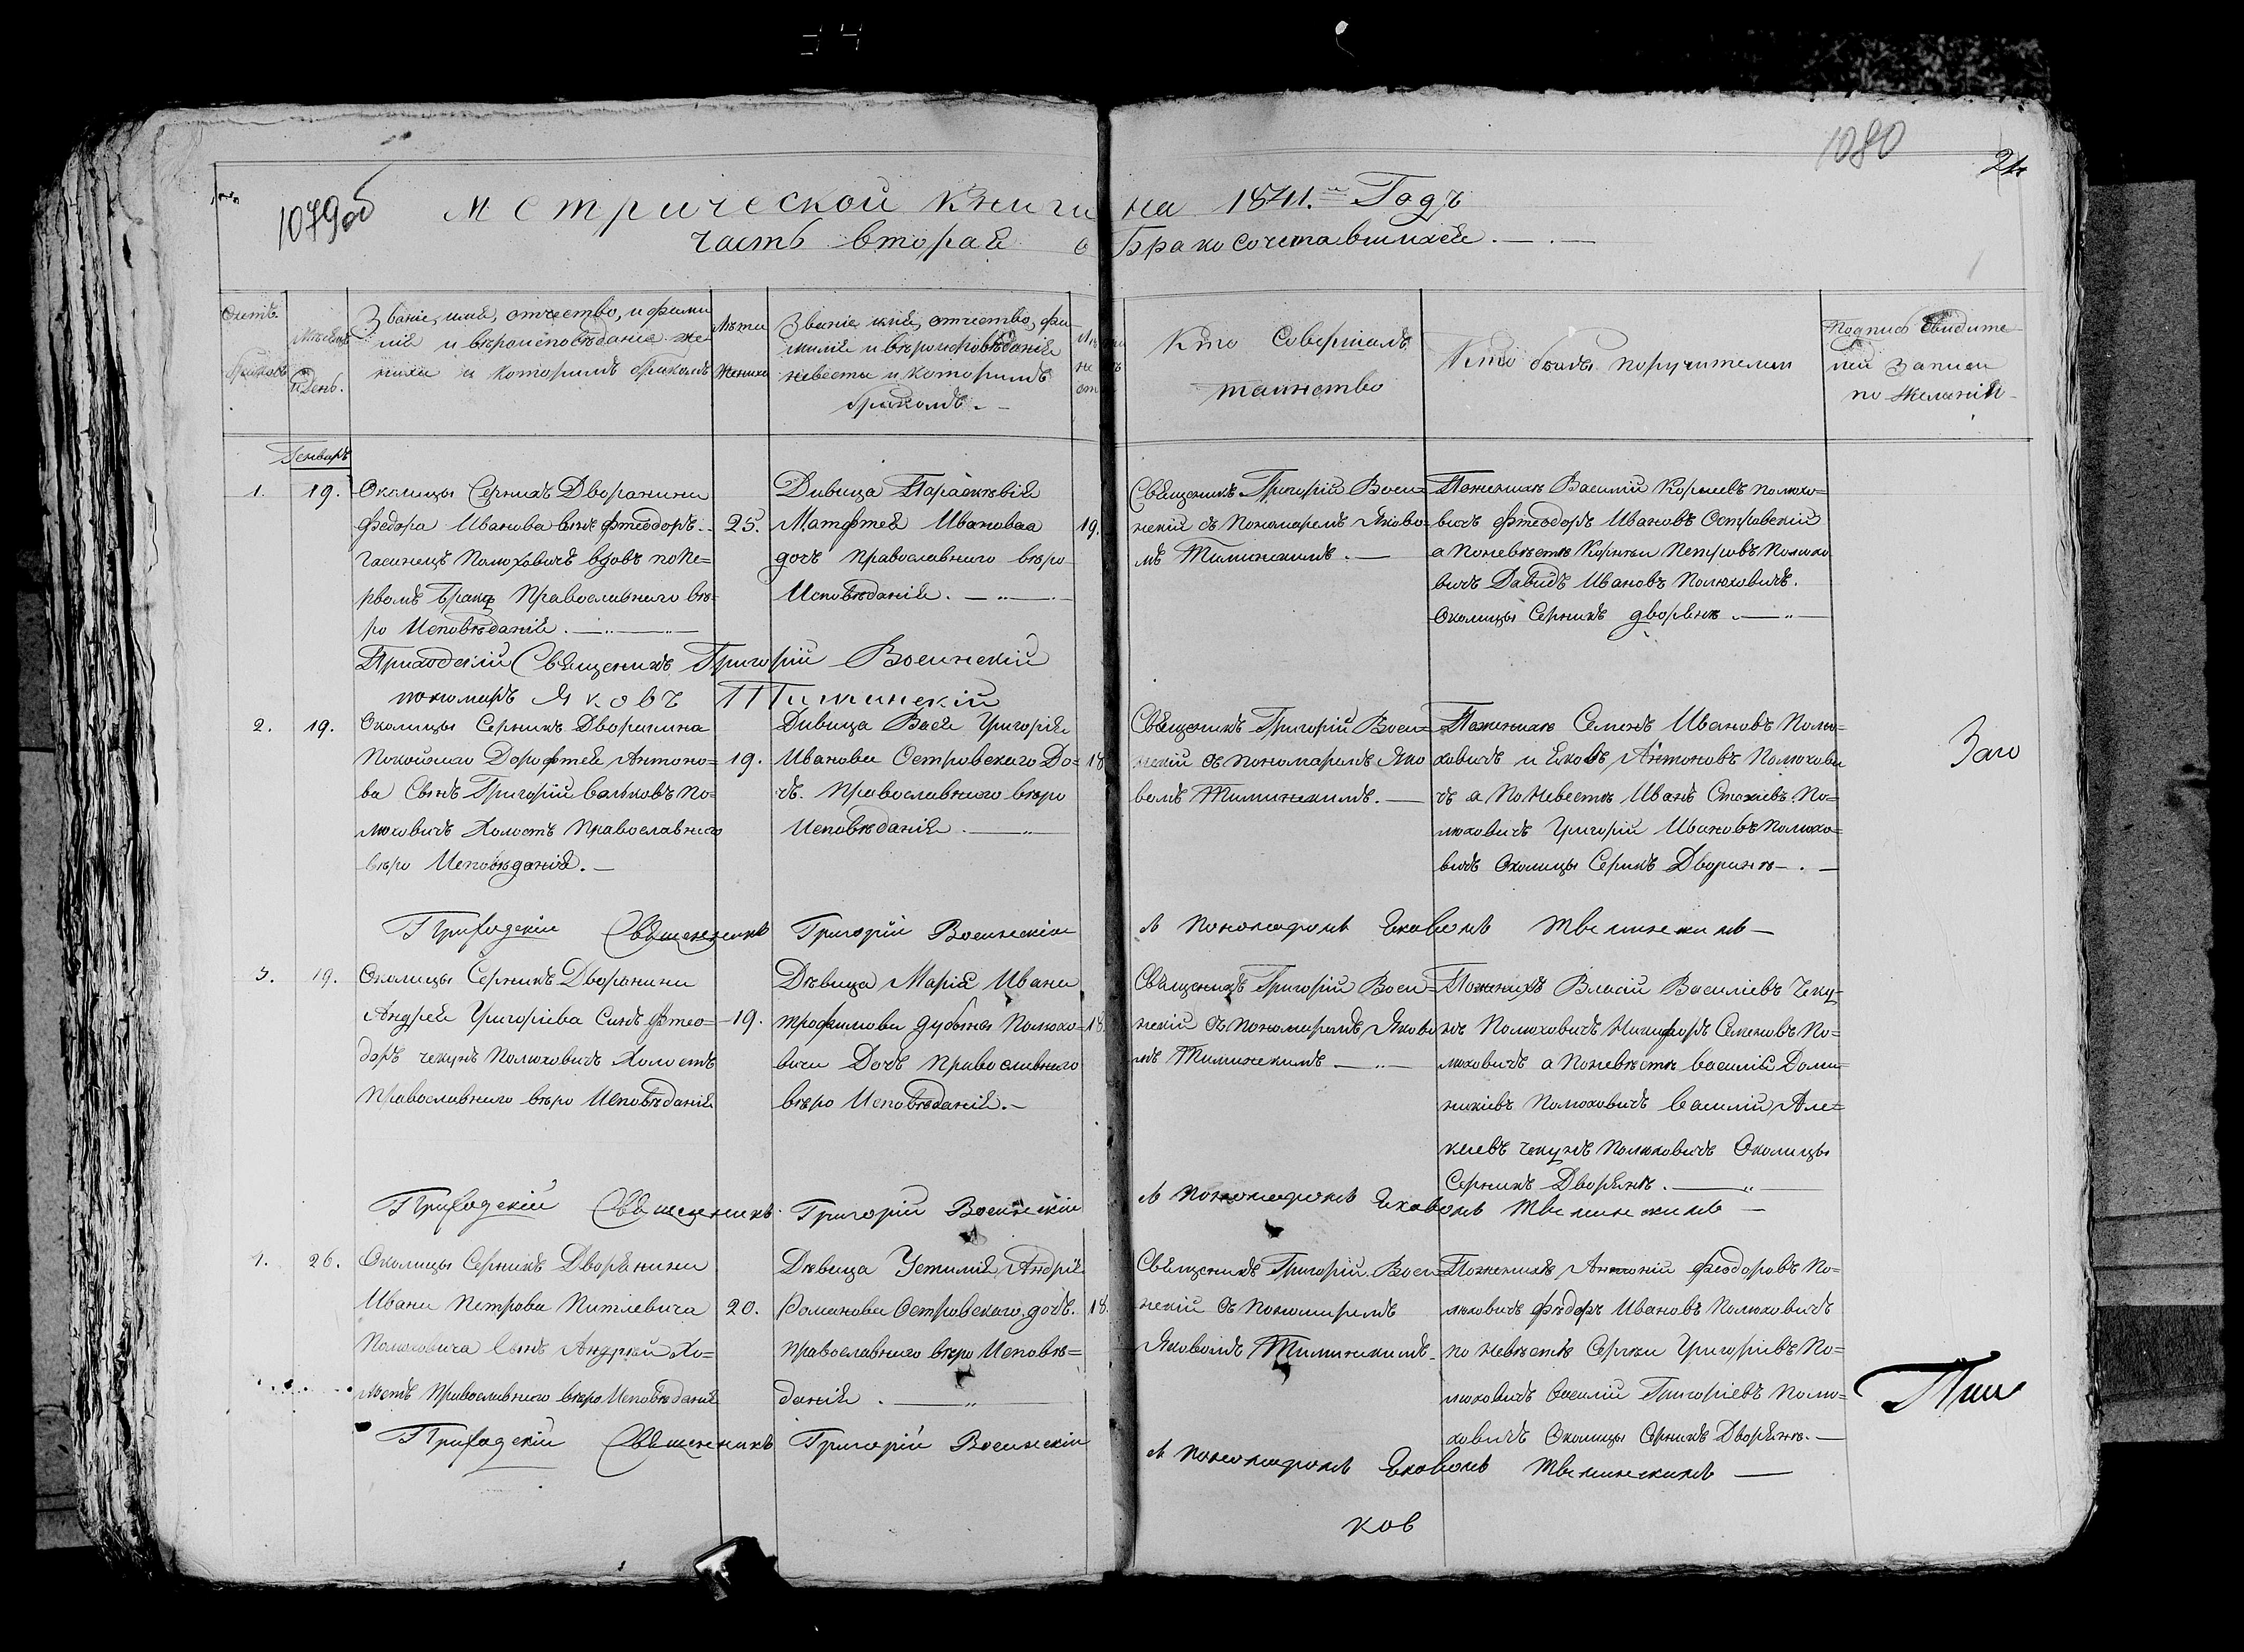 1080
24
1079об
Метрической Книги на 1841.й Годъ
часть вторая о Бракосочетавшихся.
Счетъ браковъ
Мѣсяцъ и День.
Званіе, имя, отчество, и фами
лія и вѣроисповѣданіе же
ниха и которымъ бракомъ
Лѣта жениха
Званіе имя, отчество, фа=
милія и вѣроисповѣданія
невесты и которымъ
бракомъ.
Кто Совершалъ
таинство
Кто былъ поручителем
Подписъ свидите
лей записи
по желанію
Генварь
1. 19.
Околицы Серникъ Дворанина
Федора Иванова сынъ Фтеодоръ
Полюховичъ вдовъ по пе=
рвомъ бракѣ Православнаго вѣ=
ро Исповѣданія.
25.
Дивица Параскевія
Матфтея Иванова
дочь православнаго вѣро
Исповѣданія.
19.
Священикъ Григорій Воси=
нскій съ пономаремъ Яково=
мъ Тиминскимъ.
Поженихѣ Василій Корнеевъ полюхо=
вичъ Фтеодоръ Ивановъ Островскій
а поневѣстѣ Корнѣи Петровъ Полюхо
вичъ Давидъ Ивановъ Полюховичъ.
Околицы Серникъ дворянѣ.
Приходскій Священикъ Григорій Восинскій
пономаръ Яковъ Тиминскій
2. 19.
Околицы Серникъ Дворанина
Покойнаго Дорофтея Антоно=
ва Сынъ Григорій Вальковъ По=
люховичъ Холостъ Православнаго
вѣро Исповѣданія.
19.
Дивица Васса Григорія
Иванова Островскаго До=
чъ. Православнаго вѣро
Исповѣданія.
18
Священикъ Григорій Воси=
нскій съ пономаремъ Яко
вомъ Тиминскимъ.
Поженихѣ Семенъ Ивановъ Полю=
ховичъ и Яковъ Антоновъ Полюхови
чъ а по невестѣ Иванъ Стахіевъ По=
люховичъ Григорій Ивановъ Полюхо=
вичъ Околицы Серникъ Дворянѣ
Заго
Приходскій Священникъ Григорій Восинскій
с Пономаромъ Яковомъ Тиминскимъ
3. 19.
Околицы Серникъ Дворанина
Андрея Григоріева Синъ Фтео=
доръ чекунъ Полюховичъ Холостъ
Православнаго вѣро Исповѣданія
19.
Дѣвица Марія Ивана
трофимова дубына Полюхо=
вича Дочъ Православнаго
вѣро Исповѣданія.
18.
Священикъ Григорій Воси=
нскій съ пономаремъ Яково
мъ Тиминскимъ
Поженихѣ Власій Василіевъ Чеку=
нъ Полюховичъ Никифоръ Семеновъ По=
люховичъ а поневѣстѣ василій Доми=
никіевъ Полюховичъ василій Але=
ксеевъ чекунъ Полюховичъ Околицы
Серникъ Дворянѣ.
Приходскій Священникъ Григорій Восинскій
с пономаромъ Яковомъ Тиминскимъ
4. 26.
Околицы Серникъ Дворанина
Ивана Петрова
Полюховича Сынъ Андрей Хо=
лостъ Православнаго вѣро Исповѣданія
20.
Дѣвица Устинія Андрія
Романова Островского дочъ.
Православнаго вѣро Исповѣ=
данія.
18.
Священикъ Григорій Воси=
нскій съ пономаремъ
Яковомъ Тиминскимъ.
Поженихѣ Антоній Феодоровъ По=
люховичъ Фѣдоръ Ивановъ Полюховичъ
по невѣстѣ Сергѣи Григоріевъ По=
люховичъ Василій Григоріевъ Полю=
ховичъ Околицы Серникъ Дворянѣ.
Приходскій Священникъ Григорій Восинскій
с Пономаромъ Яковомъ Тиминскимъ
ков